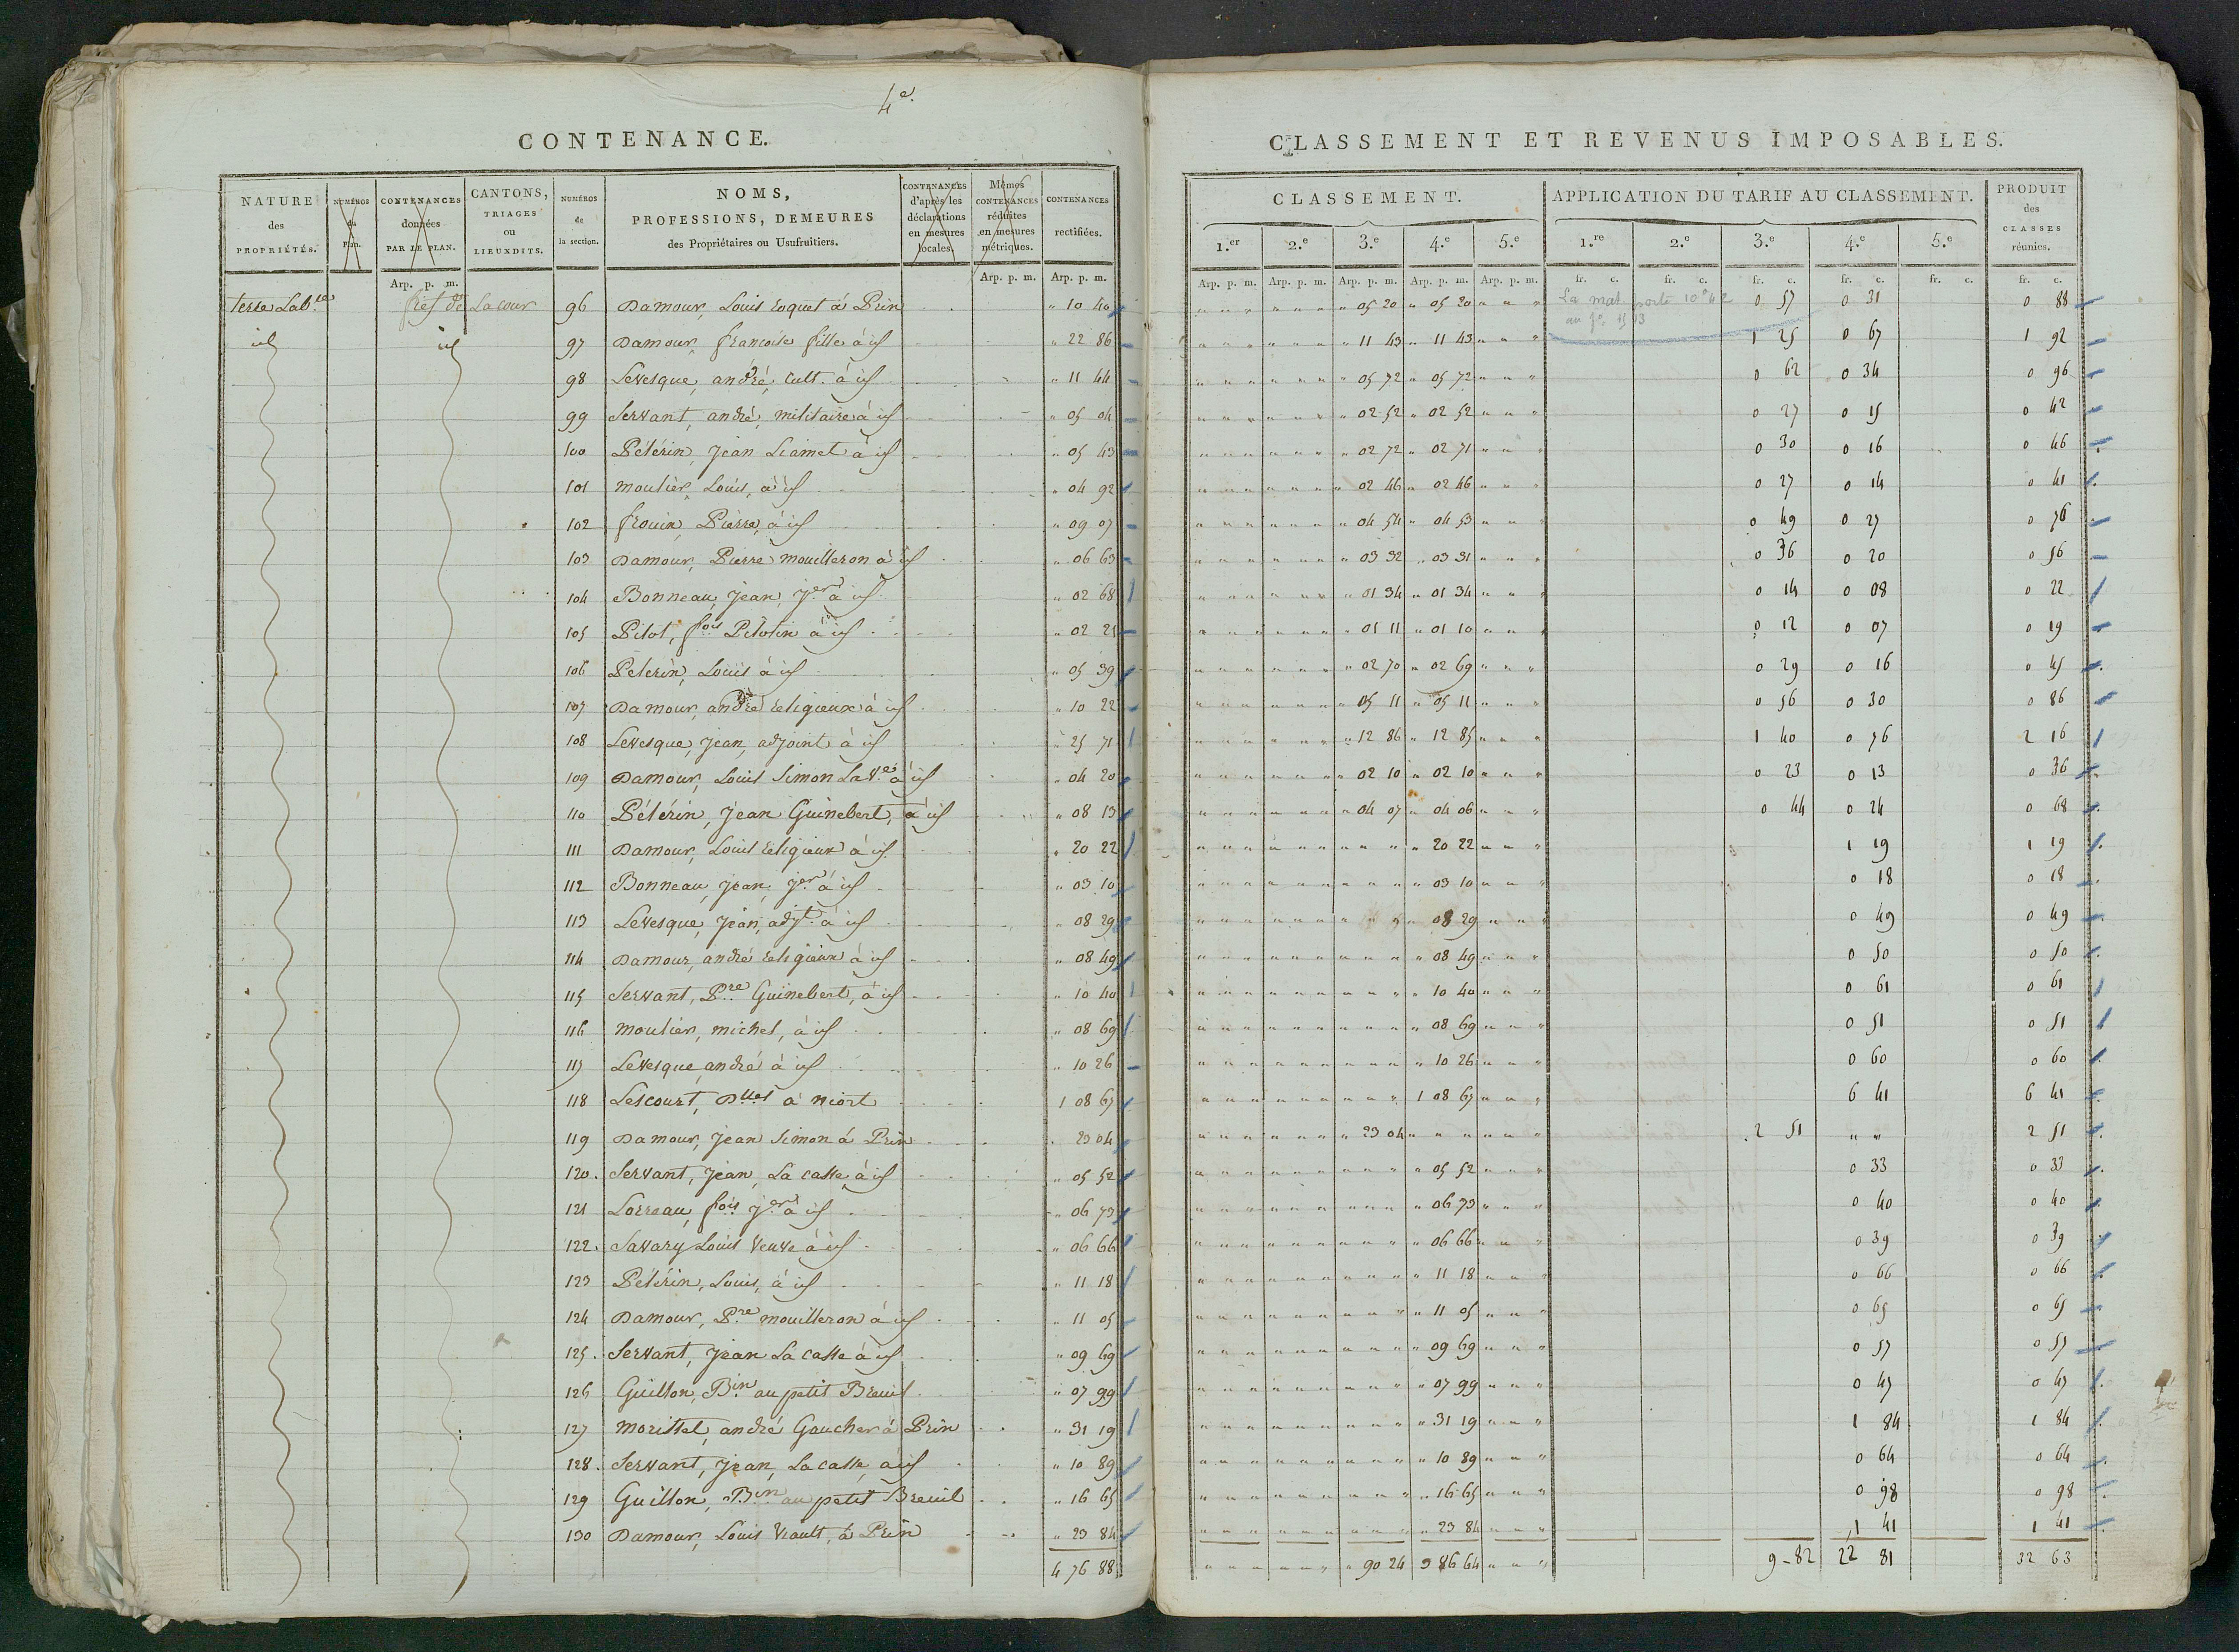 4e.
CONTENANCE.
NATURE des PROPRIÉTÉS. NUMÉROS du Plan. CONTENANCES données PAR LE PLAN. CANTONS, TRIAGES OU LIEUXDITS. NUMÉROS de la section. NOMS, PROFESSIONS, DEMEURES des Propriétaires ou Usufruitiers. CONTENANCES d'après les déclarations en mesures locales. Mêmes CONTENANCES réduites en mesures métriques. CONTENANCES rectifiées.
Arp. p. m. Arp. p. m. Arp. p. m.
terre Labre fief de Lacour 96 Damour, Louis roquet à Prin " 10 40
id id 97 Damour, françoise fille à id " 22 86
98 Levesque, andré, cult. à id " 11 44
99 Servant, andré, militaire à id " 05 04
100 Pélérin, Jean Liamet à id " 05 43
101 moulier, Louis, à id " 04 92
102 frouin, Pierre, à id " 09 07
103 Damour, Pierre mouilleron à id " 06 63
104 Bonneau, Jean, Jer à id " 02 68
105 Pilot, fois Pilotin à id " 02 21
106 Pelerin, Louis à id " 05 39
107 Damour, andré religieux à id " 10 22
108 Levesque, Jean, adjoint à id " 25 71
109 Damour, Louis Simon La Ve. à id " 04 20
110 Pélérin, Jean Guinebert, à id " 08 13
111 Damour, Louis religieux à id " 20 22
112 Bonneau, Jean, Jer à id " 03 10
113 Levesque, Jean, adjt à id " 08 29
114 Damour, andré religieux à id " 08 49
115 Servant, Pre Guinebert, à id " 10 40
116 moulier, michel, à id " 08 69
117 Levesque, andré à id " 10 26
118 Lescourt, Dlles à niort 1 08 67
119 Damour, Jean Simon à Prin " 23 04
120. Servant, Jean, La casse, à id " 05 52
121 Lorreau, fois Jer à id " 06 73
122. Savary Louis Veuve à id " 06 66
123 Pélérin, Louis, à id " 11 18
124 Damour, Pre mouilleron à id " 11 05
125. Servant, Jean La casse à id " 09 69
126 Guillon, Bin au petit Breuil " 07 99
127 Morisset, andré Gaucher à Prin " 31 19
128. Servant, Jean, La casse, à id " 10 89
129 Guillon, Bin au petit Breuil " 16 65
130 Damour, Louis Viault, à Prin " 23 84
4 76 88
CLASSEMENT ET REVENUS IMPOSABLES.
CLASSEMENT. APPLICATION DU TARIF AU CLASSEMENT. PRODUIT des CLASSES réunies.
1.er 2.e 3.e 4.e 5.e 1.re 2.e 3.e 4.e 5.e
Arp. p. m. Arp. p. m. Arp. p. m. Arp. p. m. Arp. p. m. fr. c. fr. c. fr. c. fr. c. fr. c. fr. c.
La mat. porte 10a 42
au fo. 1513
" 05 20 " 05 20 0 57 0 31 0 88
" 11 43 " 11 43 1 25 0 67 1 92
" 05 72 " 05 72 0 62 0 34 0 96
" 02 52 " 02 52 0 27 0 15 0 42
" 02 72 " 02 71 0 30 0 16 0 46
" 02 46 " 02 46 0 27 0 14 0 41
" 04 54 " 04 53 0 49 0 27 0 76
" 03 32 " 03 31 0 36 0 20 0 56
" 01 34 " 01 34 0 14 0 08 0 22
" 01 11 " 01 10 0 12 0 07 0 19
" 02 70 " 02 69 0 29 0 16 0 45
" 05 11 " 05 11 0 56 0 30 0 86
" 12 86 " 12 85 1 40 0 76 2 16
" 02 10 " 02 10 0 23 0 13 0 36
" 04 07 " 04 06 0 44 0 24 0 68
" 20 22 1 19 1 19
" 03 10 0 18 0 18
" 08 29 0 49 0 49
" 08 49 0 50 0 50
" 10 40 0 61 0 61
" 08 69 0 51 0 51
" 10 26 0 60 0 60
1 08 67 6 41 6 41
" 23 04 2 51 " " 2 51
" 05 52 0 33 0 33
" 06 73 0 40 0 40
" 06 66 0 39 0 39
" 11 18 0 66 0 66
" 11 05 0 65 0 65
" 09 69 0 57 0 57
" 07 99 0 47 0 47
" 31 19 1 84 1 84
" 10 89 0 64 0 64
" 16 65 0 98 0 98
" 23 84 1 41 1 41
" 90 24 3 86 64 9-82 22 81 32 63